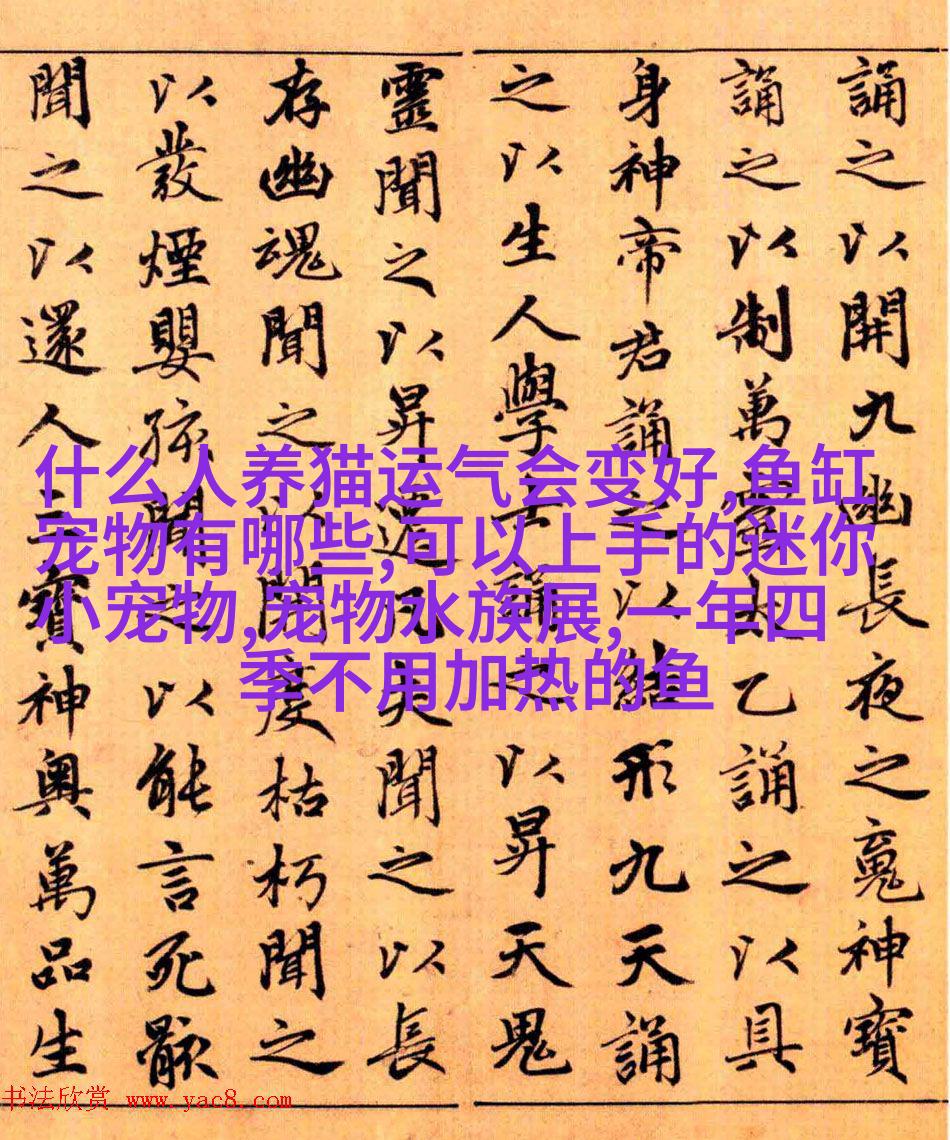 誦之以開九幽長夜之䰟神寶
誦之以制萬靈太乙誦之以具
身神帝君誦之以結形九天誦
之以生人學士誦之以昇天鬼
靈聞之以昇遷凡夫聞之以長
存幽魂聞之以開度枯朽聞之
以發煙嬰孩聞之以能言死骸
聞之以還人三寶神奧萬品生
什么人养猫运气会变好,鱼缸
宠物有哪些,可以上手的迷你
小宠物,宠物水族展,一年四
季不用加热的鱼
书法欣赏 www.yac8.com